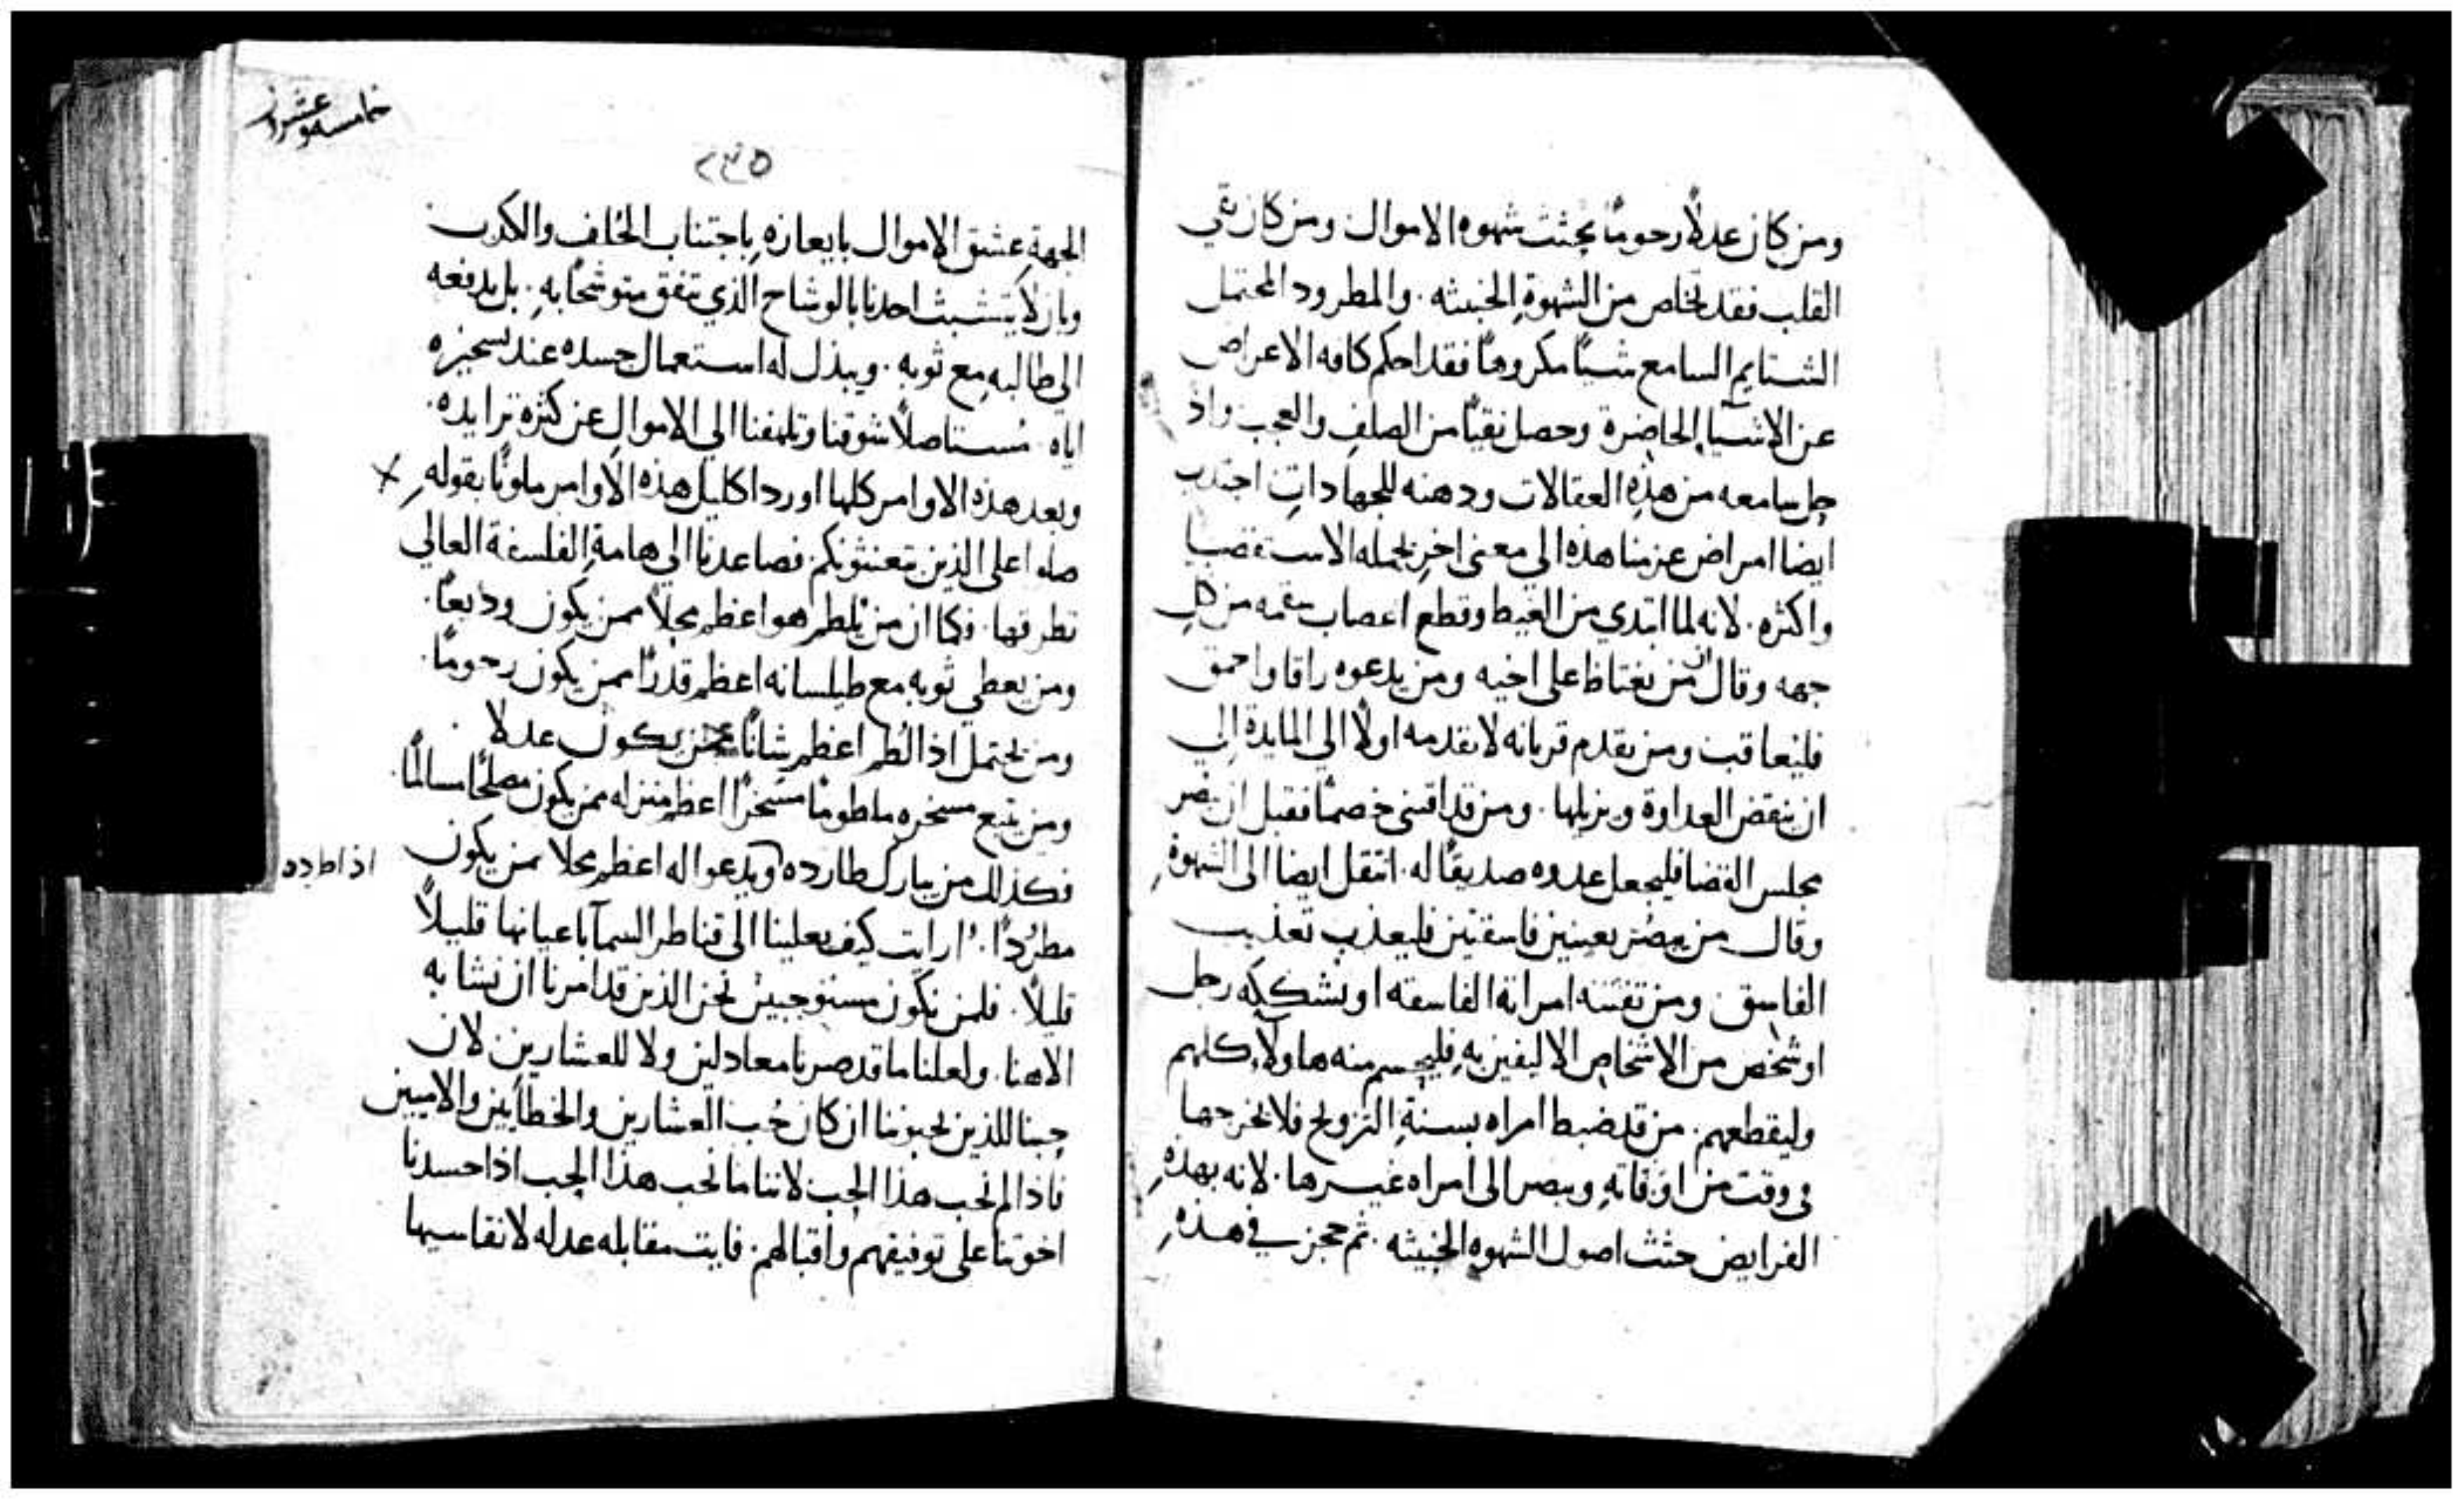 ومن كان عدلًا رحومًا يجتث شهوه الاموال ومن كان نقي
القلب فقد تخلص من الشهوةِ الخبيثه . والمطرود المحتمل
الشتايم السامع شيًا مكروهًا فقد احكم كافه الاعراض
عن الاشيا الحاضرة وحصل نقيًا من الصلفِ والعجب واذ
حل سامعه من هذهِ العقالات ودهنه للجهاداتِ اجتدب
ايضا امراض عزمنا هذه الى معنى اخرٍ بجمله الاستقصا
واكثره . لانه لما ابتدي من الغيط وقطع اعصاب سقمه من كلِ
جهه وقال ان من يغتاظ على اخيه ومن يدعوه راقا واحمق
فليعاقب ومن يقدم قربانه لا يقدمه اولًا الى المايدة الي
ان ينقض العداوة ويزيلها . ومن قد اقتنى خصمًا فقبل ان يبصر
مجلس القضا فليجعل عدوه صديقًا له . انتقل ايضا الى الشهوةِ
وقال من يبصر بعينين فاسقتين فليعذب تعذيب
الفاسق ومن تفتنه امراة الفاسقه او يشككه رجل
او شخص من الاشخاص الاليفين بهِ فليحسم منه هاولاءِ كلهم
وليقطعهم . من قد ضبط امراه بسنةِ التزويج فلا يخرجها
في وقت من اوقاتهِ ويبصر الى امراه غيرها . لانه بهذهِ
الفرايض حثث اصول الشهوه الخبيثه . ثم حجز في هذهِ
خامسه وعشرون
٢٤٥
الجهةِ عشق الاموال بايعازهِ باجتناب الحُلف والكدب
وبان لا يتشبث احدنا بالوشاح الذي يتفق متوشحًا بهِ . بل يدفعه
الي طالبهِ مع ثوبه . ويبذل له استعمال جسده عند تسخيره
اياه . مُستاصلًا شوقنا وتلهفنا الى الاموالِ عن كثرة تزايده .
وبعد هذه الاوامر كلها اورد اكليل هذه الاوامر ملونًا بقولهِ
صلوا على الذين يعنتونكم فصاعدنا الي هامةِ الفلسفة العالي
تطرقها . فكما ان من يُلطم هو اعظم محلًا ممن يكون وديعًا .
ومن يعطي ثوبه مع طيلسانه اعظم قدرًا ممن يكون رحومًا .
ومن يحتمل اذا لُطم اعظم شانًا ممن يكون عدلا
ومن يتبع مسخره ملطومًا مسخرًا اعظم منزله ممن يكون مصلحًا مسالمًا .
فكذلك من يبارك طارده ويدعوا له اعظم محلا ممن يكون
اذا طرده
مطرُدًا . ارايت كيف يعلينا الى قناطر السمآ باعيانها قليلًا
قليلًا . فلمن نكون مستوجبين نحن الذين قد امرنا ان نشابه
الاهنا . ولعلنا ما قد صرنا معادلين ولا للعشارين لان
حبنا للذين يحبوننا ان كان حُب العشارين والخطايين والامميين
فاذا لم نحب هذا الحب لاننا ما نحب هذا الحب اذا حسدنا
اخوتنا على توفيقهم واقبالهم . فايت مقابله عدله لا نقاسيها